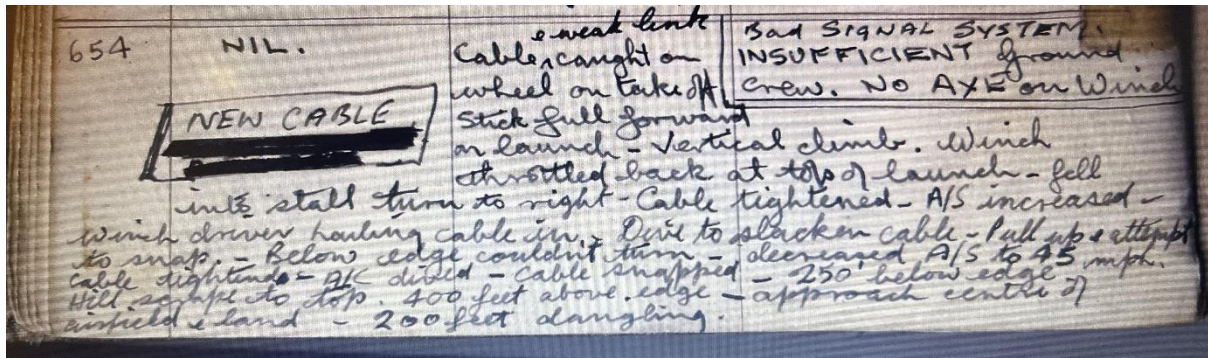 654
NIL.
NEW CABLE
& weak link
Cable caught on
wheel on take off
Stick full forward
on launch - Vertical climb. Winch
throttled back at top of launch - fell
into stall turn to right - Cable tightened - A/S increased -
winch driver hauling cable in. - Dive to slacken cable - Pull up & attempt
to snap. - Below edge couldn't turn - decreased A/S to 45 mph.
cable tightened - A/C dived - Cable snapped - 250' below edge
Hill scrape to top. 400 feet above edge - approach centre of
airfield & land - 200 feet dangling.
Bad SIGNAL SYSTEM.
INSUFFICIENT ground
crew. NO AXE on Winch